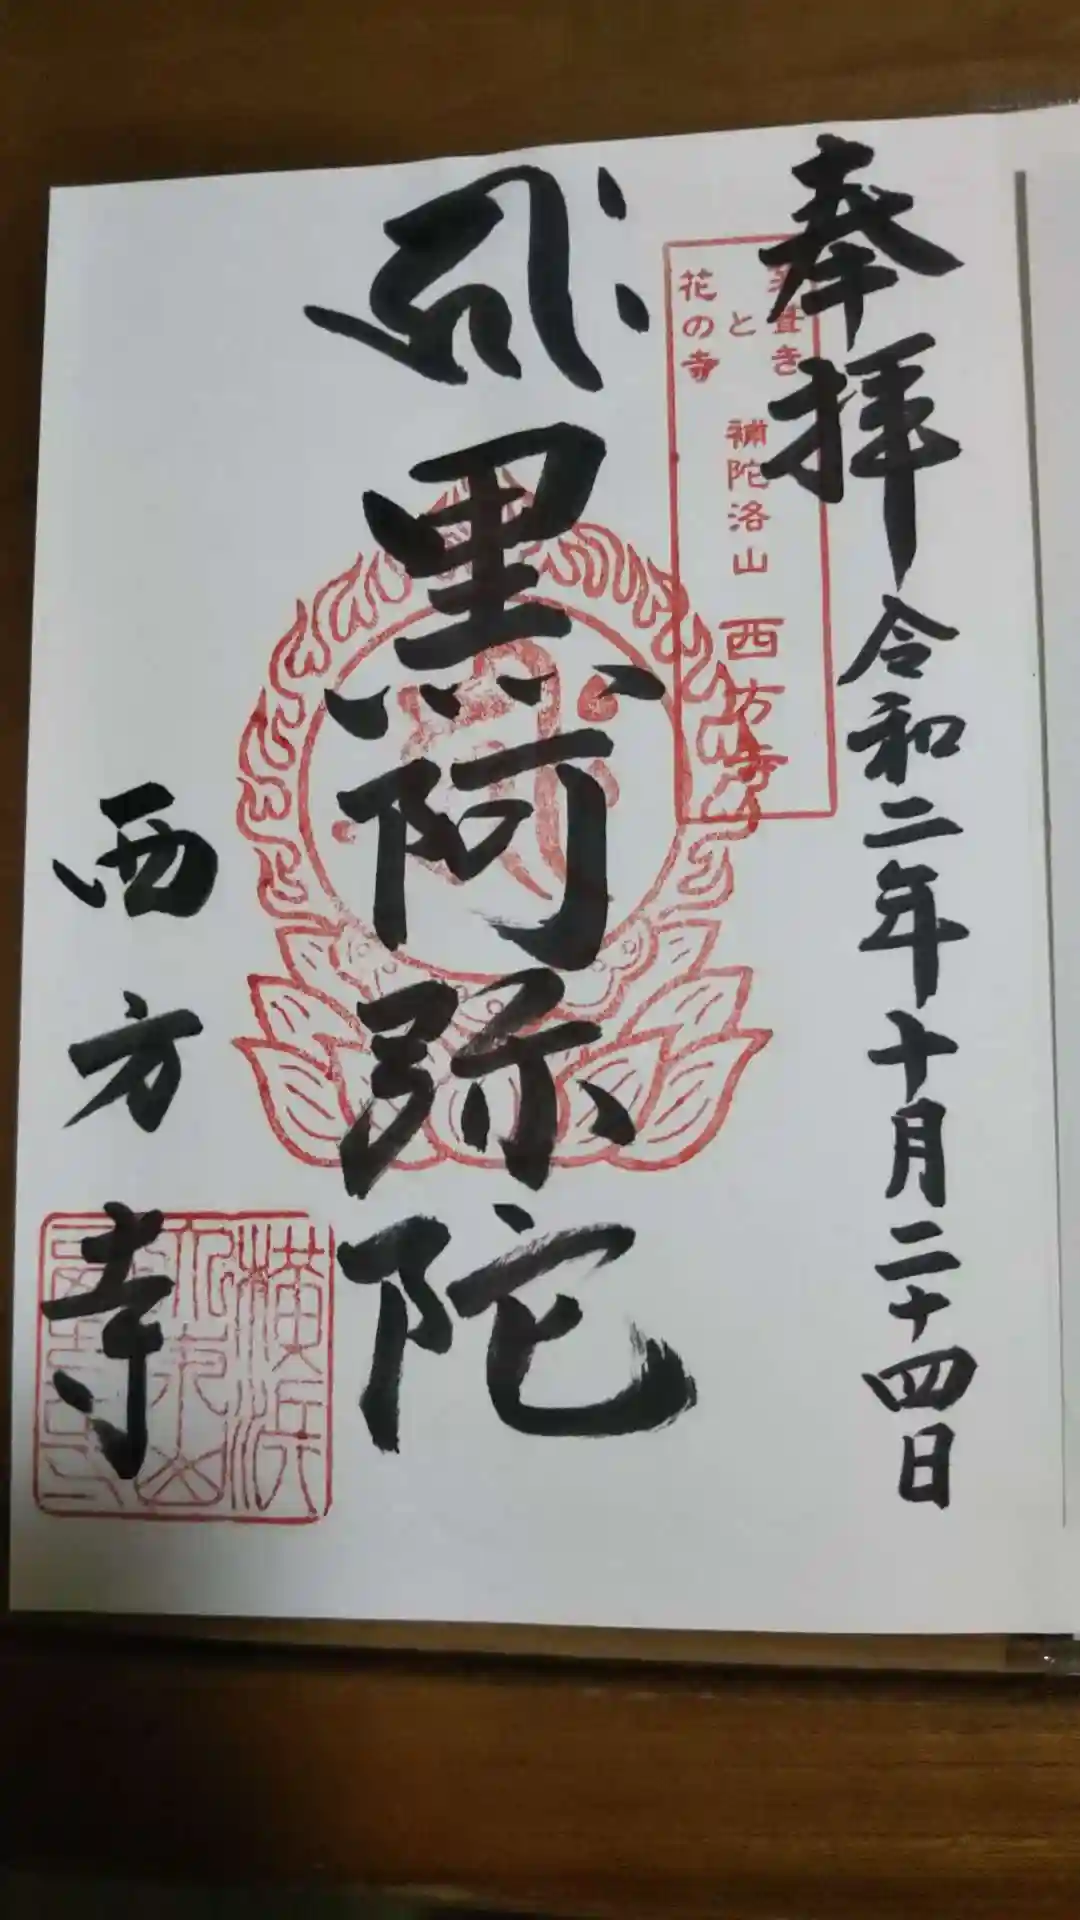 奉拝 令和二年十月二十四日
茅葺き
と
花の寺
補陀洛山 西方寺
黒阿弥陀
西方寺
横浜